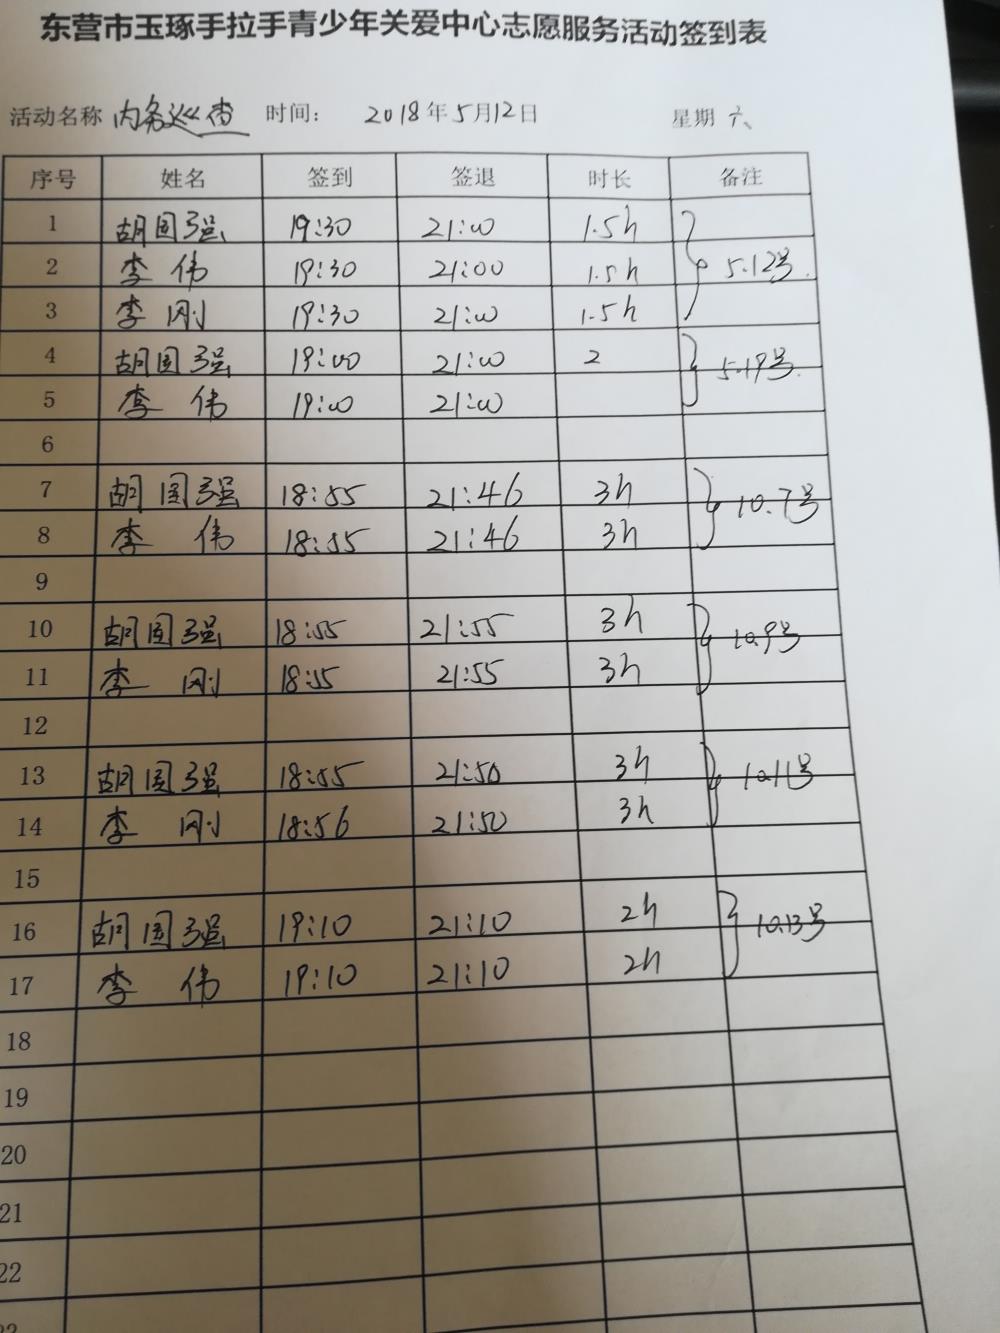 东营市玉琢手拉手青少年关爱中心志愿服务活动签到表
活动名称 内务巡查 时间： 2018年5月12日 星期 六
序号 姓名 签到 签退 时长 备注
1 胡国强 19:30 21:00 1.5h
2 李伟 19:30 21:00 1.5h 5.12号
3 李刚 19:30 21:00 1.5h
4 胡国强 19:00 21:00 2 5.19号
5 李伟 19:00 21:00
6
7 胡国强 18:55 21:46 3h 10.7号
8 李伟 18:55 21:46 3h
9
10 胡国强 18:55 21:55 3h 10.9号
11 李刚 18:55 21:55 3h
12
13 胡国强 18:55 21:50 3h 10.11号
14 李刚 18:56 21:50 3h
15
16 胡国强 19:10 21:10 2h 10.13号
17 李伟 19:10 21:10 2h
18
19
20
21
22
23